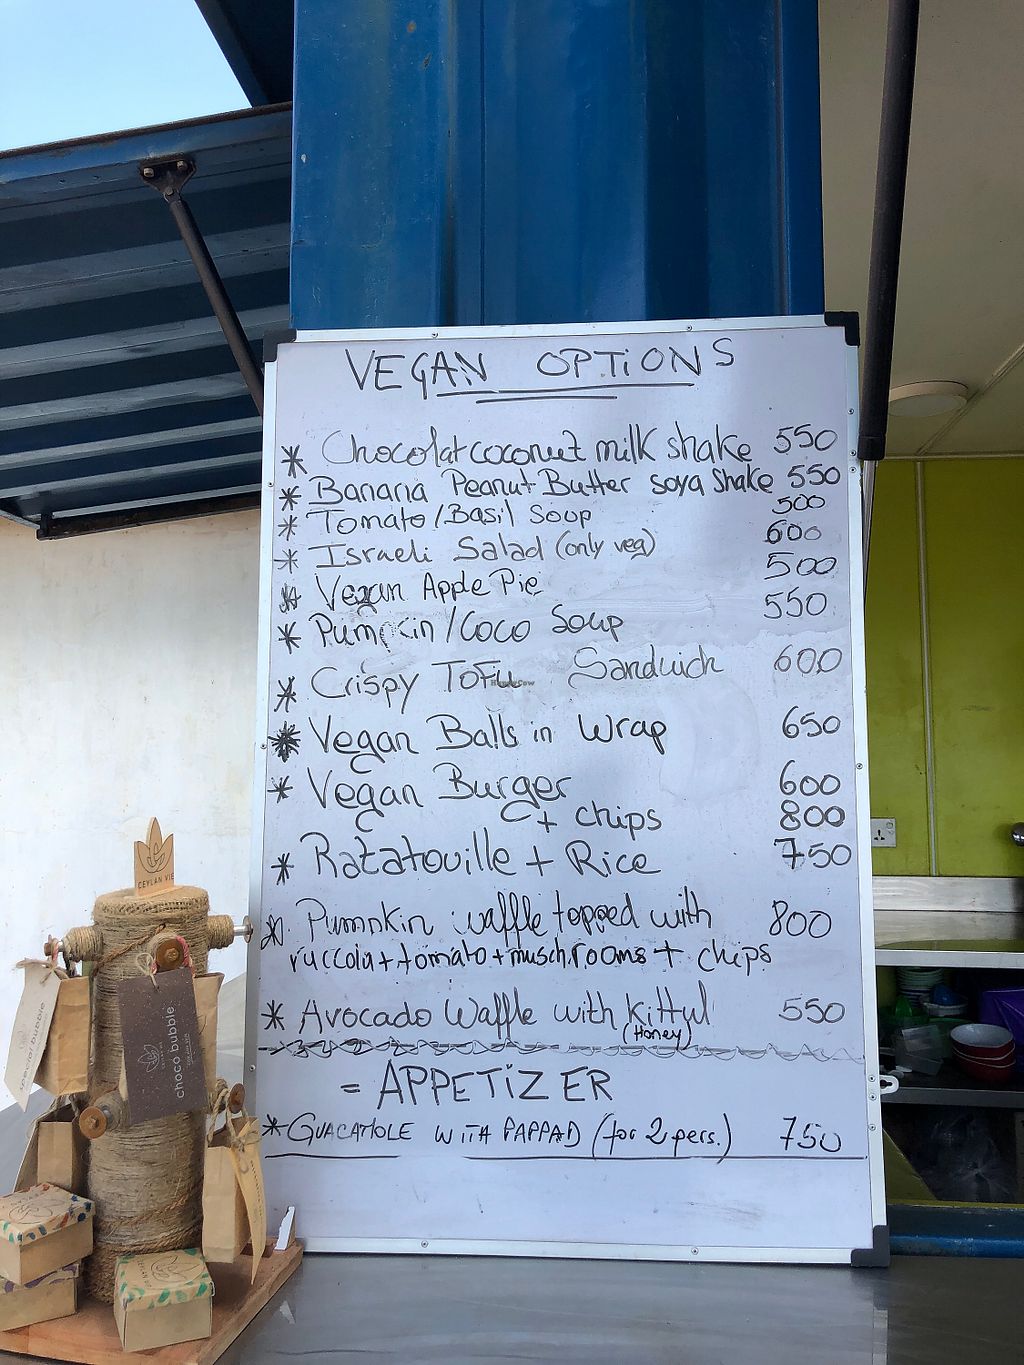 VEGAN OPTIONS
* Chocolat coconut milk shake 550
* Banana Peanut Butter soya Shake 550
* Tomato/Basil Soup 500
* Israeli Salad (only veg) 600
* Vegan Apple Pie 500
* Pumpkin/Coco Soup 550
* Crispy ToFu Sandwich 600
HappyCow
* Vegan Balls in Wrap 650
* Vegan Burger 600
+ chips 800
* Ratatouille + Rice 750
* Pumnkin waffle topped with 800
ruccola + tomato + muschrooms + chips
* Avocado Waffle with Kittul 550
(Honey)
= APPETIZER
* GUACAMOLE WiTH PAPPAD (for 2 pers.) 750
CEYLAN VIE
choco bubble